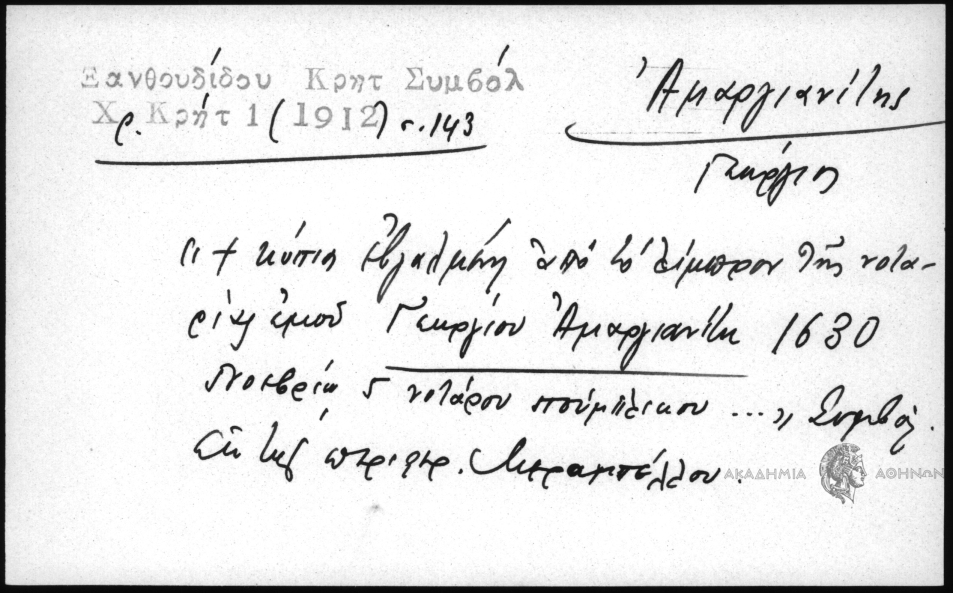 Ξανθουδίδου Κρητ Συμβόλ
Χρ. Κρήτ 1 (1912) σ. 143
Ἀμαργιανίτης
Γεώργιος
"+ κόπια ἐβγαλμένη ἀπό τό λίμπρον τῆς νοτα-
ρίας ἐμοῦ Γεωργίου Ἀμαργιανίτη 1630
Νοεβρίω 5 νοτάρου πούμπλικου ...,, Συμβόλ.
ἐκ τῆς περιφερ. Μεραμπέλλου.
ΑΚΑΔΗΜΙΑ ΑΘΗΝΩΝ